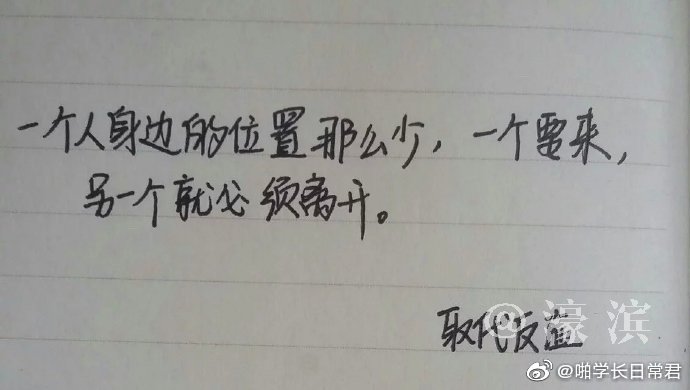 一个人身边的位置那么少，一个要来，
另一个就必须离开。
取代反义
@濠滨
@啪学长日常君